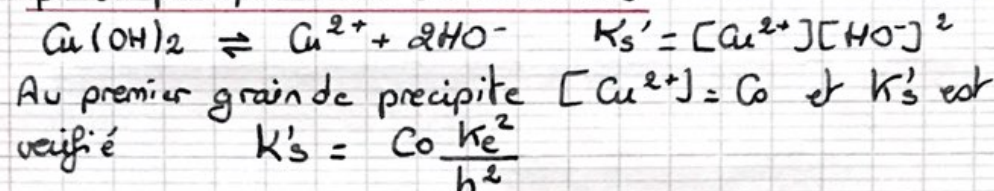 Cu(OH)2 ⇌ Cu²⁺ + 2HO⁻ Ks' = [Cu²⁺][HO⁻]²
Au premier grain de precipite [Cu²⁺] = Co et K's est
verifié K's = Co Ke²/h²